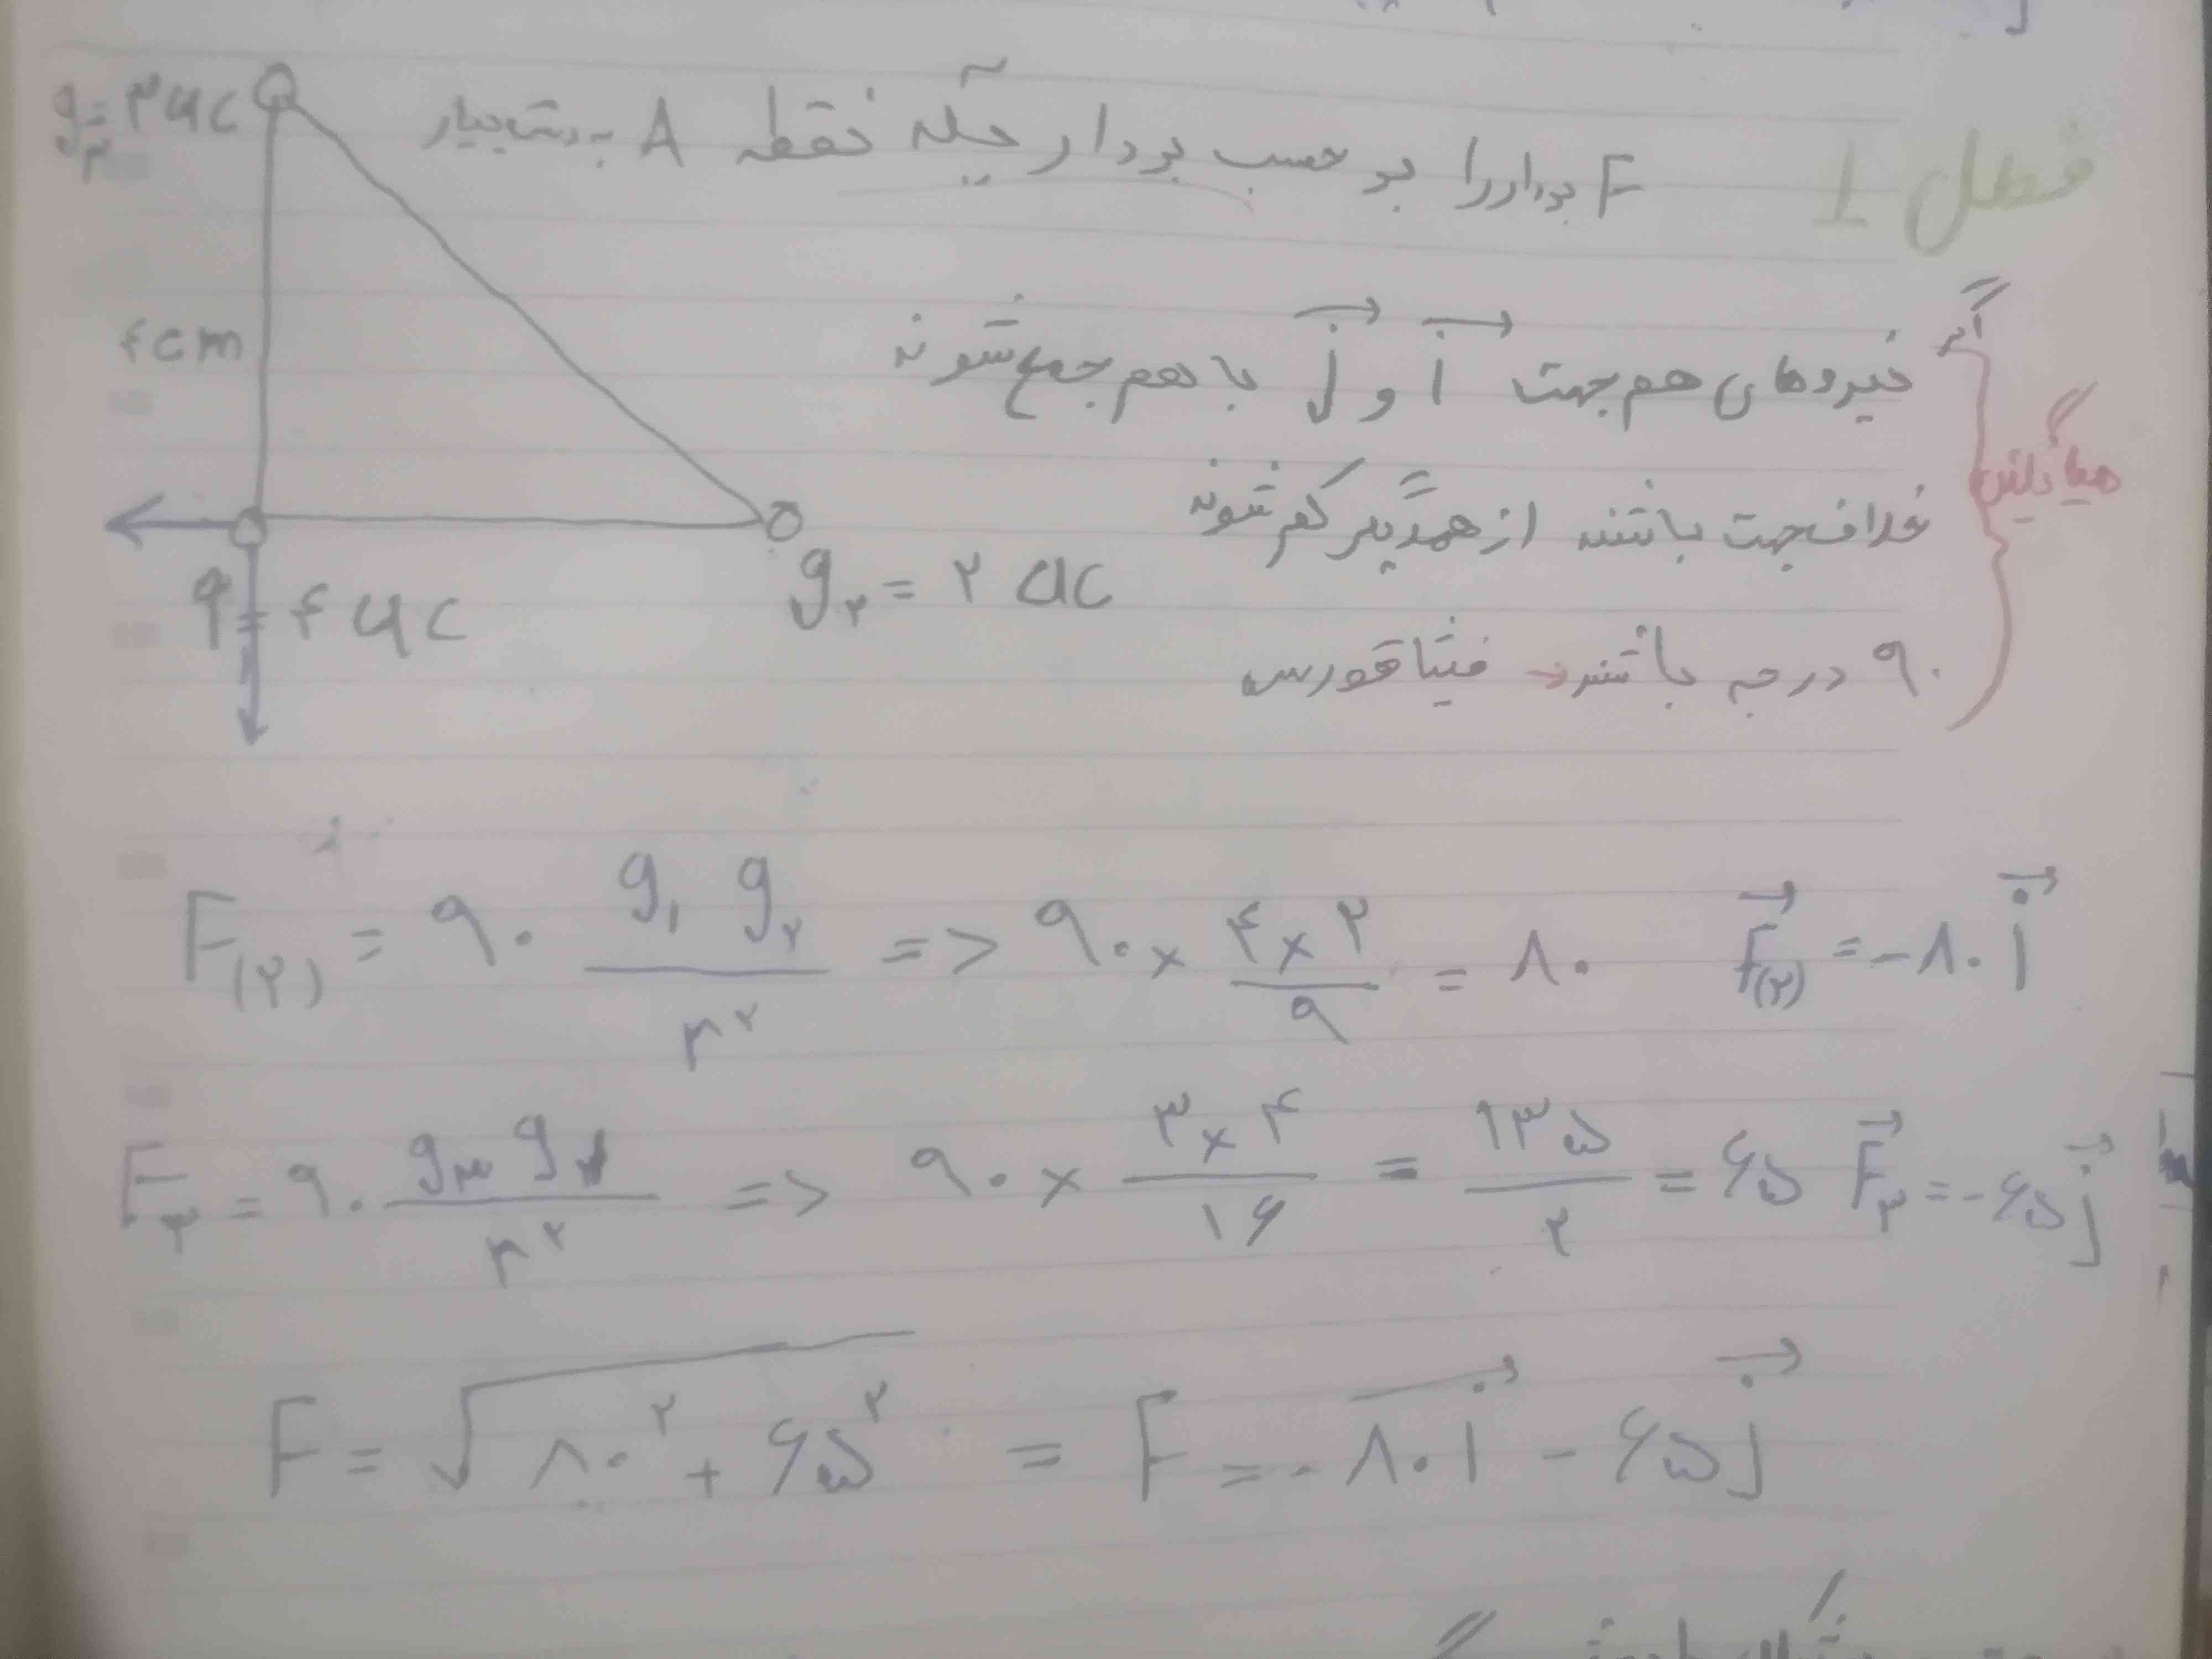 فصل 1
F بردار را بر حسب بردار یکه نقطه A بدست بیار
g₃ = ۳ uc
۴cm
q = ۴ uc
g₂ = ۲ uc
اگر
نیروهای هم جهت i و j با هم جمع شوند
خلاف جهت باشند از همدیگر کم شوند
۹۰ درجه باشند فیثاقورس
میانگین
F(۲) = ۹۰ g₁ g₂ / r² => ۹۰ × ۴×۲ / ۹ = ۸۰ F(۲) = -۸۰ i
F₃ = ۹۰ g₃ g₁ / r² => ۹۰ × ۳×۴ / ۱۶ = ۱۳۵ / ۲ = ۶۵ F₃ = -۶۵ j
F = √۸۰² + ۶۵² = F = -۸۰ i - ۶۵ j